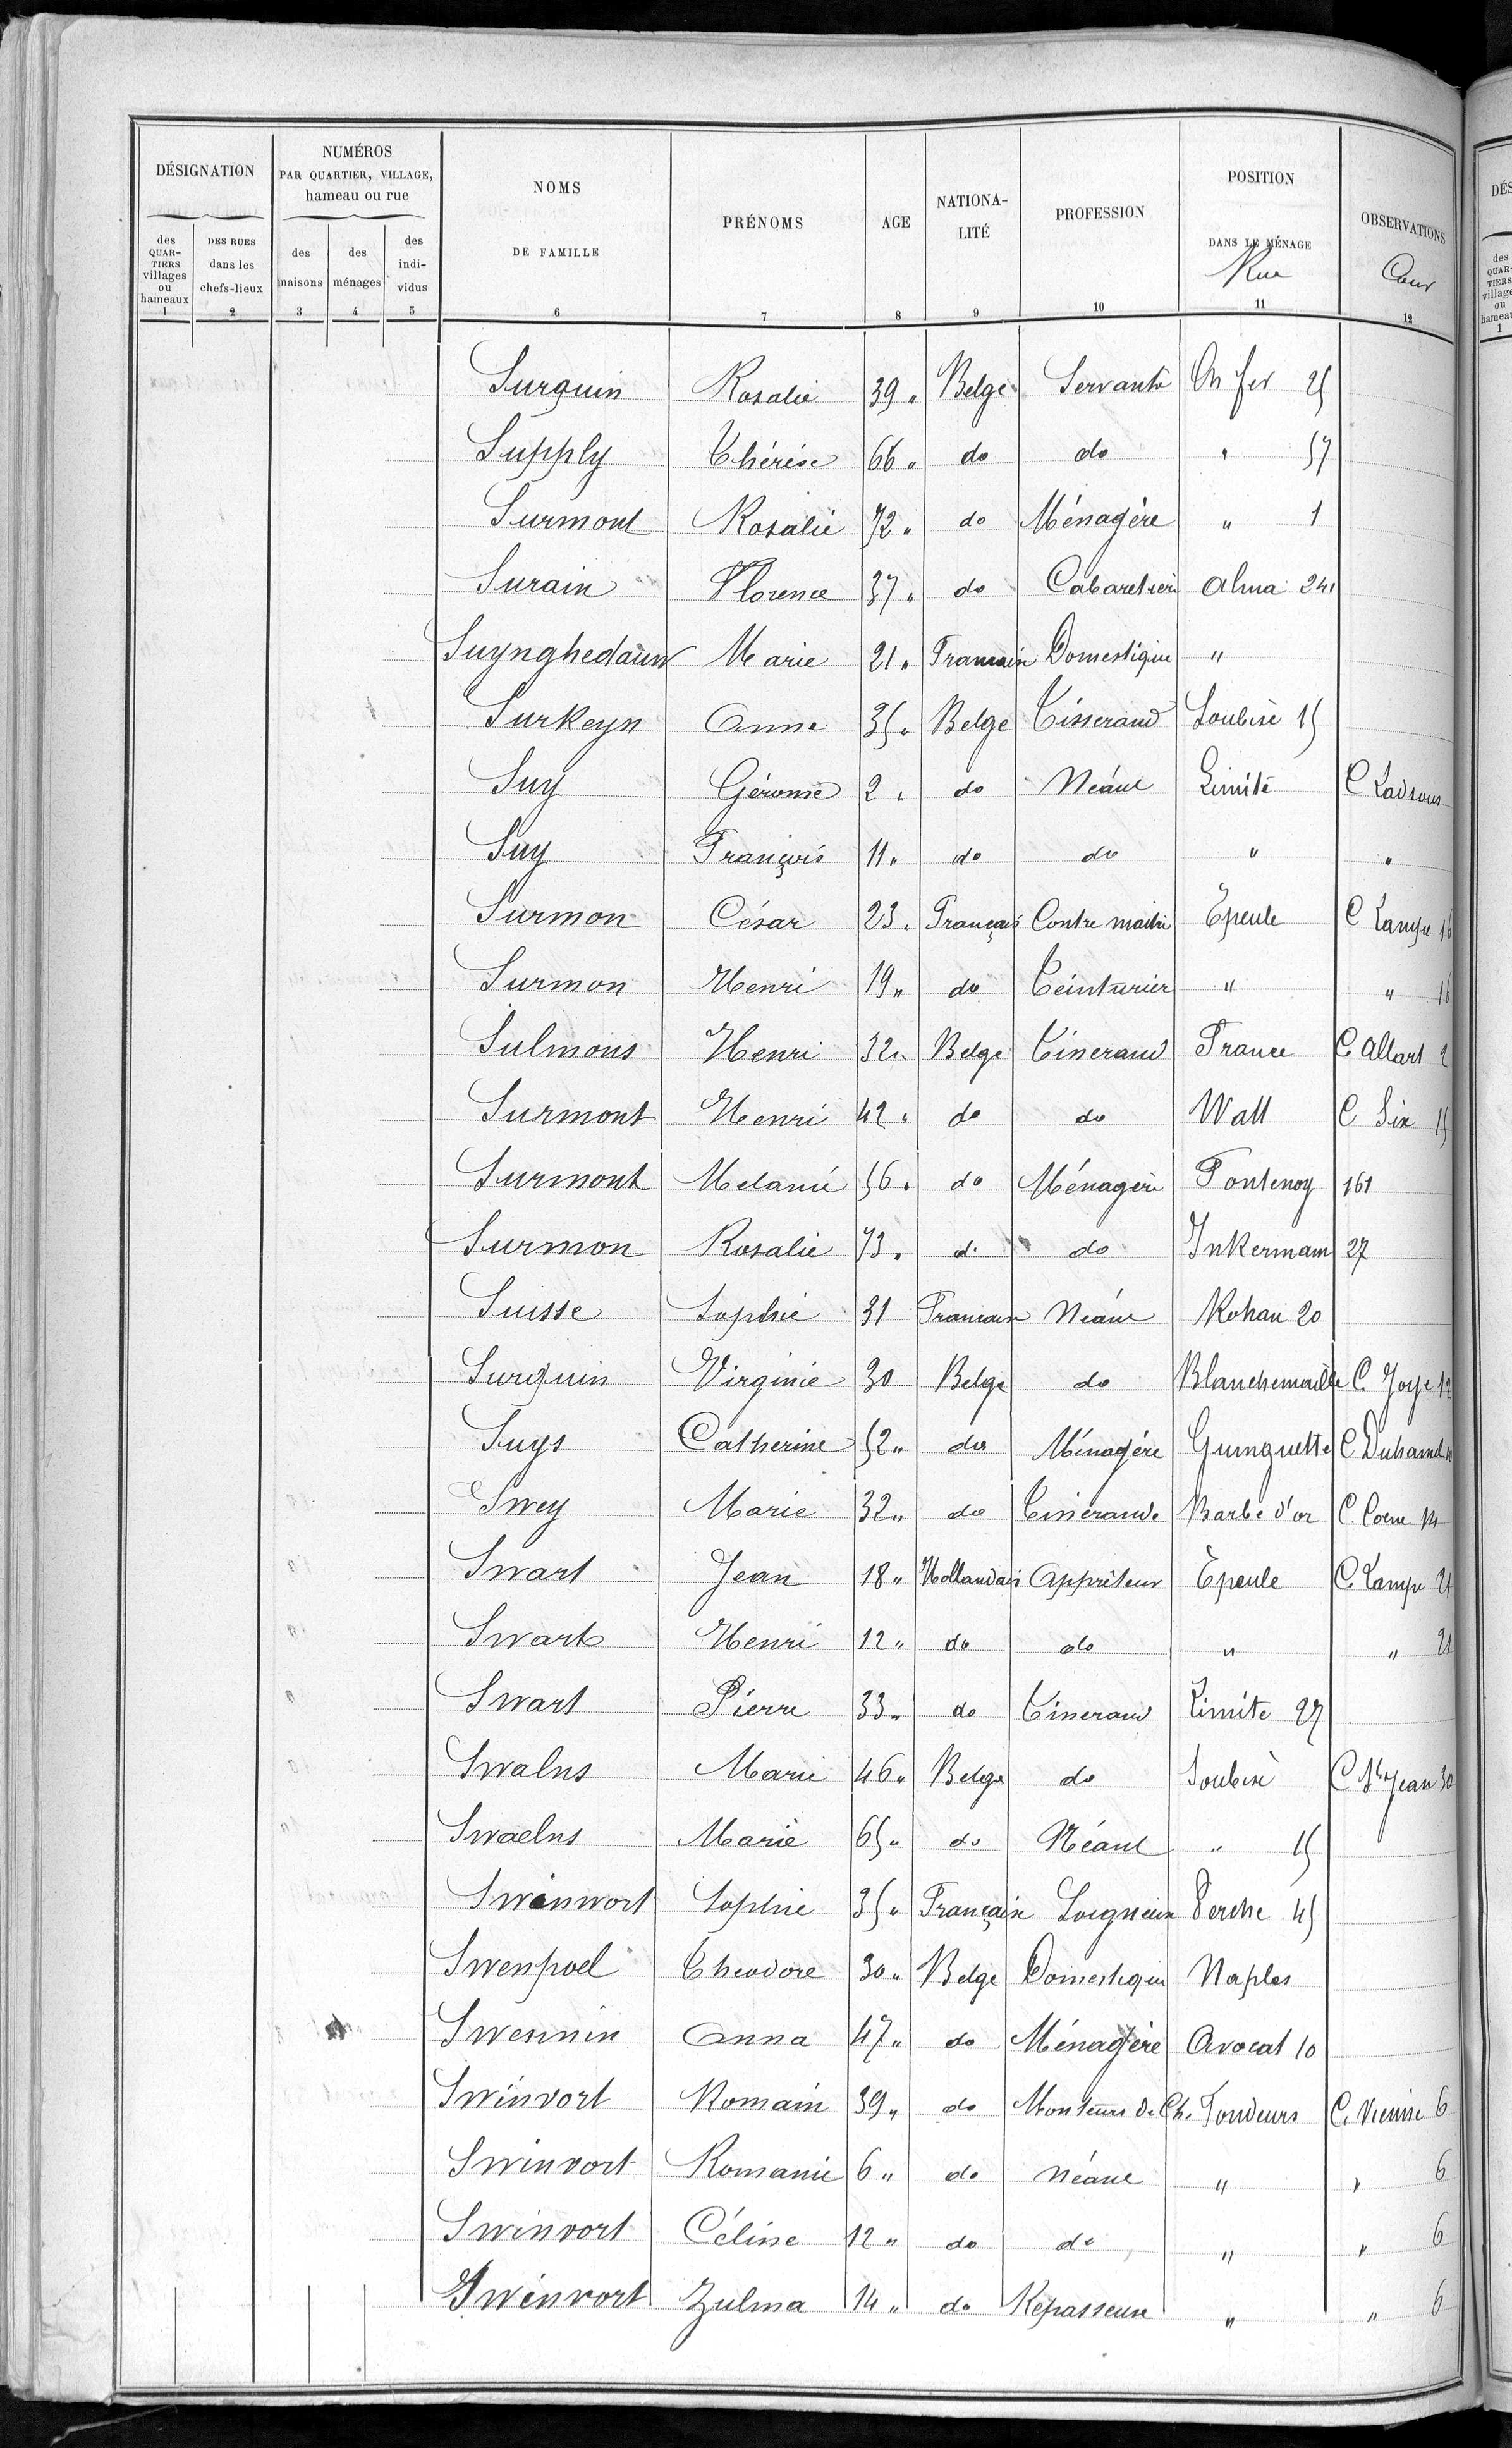 DÉSIGNATION NUMÉROS PAR QUARTIER, VILLAGE, hameau ou rue NOMS DE FAMILLE PRÉNOMS AGE NATIONALITÉ PROFESSION POSITION DANS LE MÉNAGE Rue OBSERVATIONS Cour
des QUARTIERS villages ou hameaux DES RUES dans les chefs-lieux des maisons des ménages des individus
1 2 3 4 5 6 7 8 9 10 11 12
Surquin Rosalie 39 " Belge Servante Ch fer 25
Supply Thérèse 66 " do do " 57
Surmont Rosalie 72 " do Ménagère " 1
Surain Florence 37 " do Cabaretière Alma 241
Suynghedauw Marie 21 " Française Domestique "
Surkeyn Anna 35 " Belge Tisserand Soubise 15
Suy 2 " do Néant Limite C
Suy François 11 " do do " "
Surmon César 23 " Français Contre maitre Epeule C Lampe 16
Surmon Henri 19 " do Teinturier " " 16
Sulmons Henri 32 " Belge Tisserand France C Allart 2
Surmont Henri 42 " do do Watt C Six 15
Surmont Melanie 56 " do Ménagère Fontenoy 161
Surmon Rosalie 73 " d. do Inkermam 27
Suisse Sophie 31 Française Néant Rohan 20
Surquin Virginie 30 Belge do Blanchemaille C. Joye 12
Suys Catherine 52 " do Ménagère Guinguette C Duhamel
Swey Marie 32 " do Tisserande Barbe d'or C. 14
Swart Jean 18 " Hollandais Apprêteur Epeule C. Lampe 21
Swart Henri 12 " do do " " 21
Swart Pierre 33 " do Tisserand Limite 27
Swalus Marie 46 " Belge do Soubise C St Jean 30
Swaelus Marie 65 " do Néant " 15
Swinwort Sophie 35 " Française Soigneuse Perche 45
Swenpoel Theodore 30 " Belge Domestique Naples
Swennin Anna 47 " do Ménagère Avocat 10
Swinvort Romain 39 " do Monteurs de Ch. Tondeurs C. Vienne 6
Swinvort Romanie 6 " do Néant " " 6
Swinvort Céline 12 " do do " " 6
Swinvort Zulma 14 " do Repasseuse " " 6